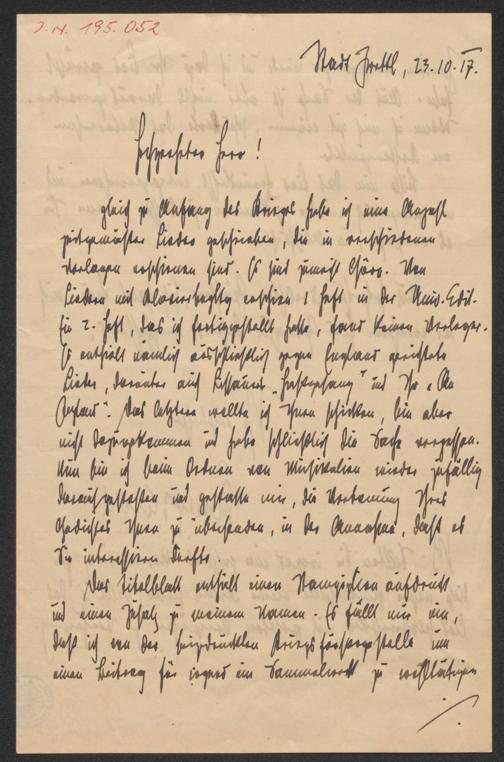 J.N. 195.052
Stadt Zwettl, 23.10.17.
Hochgeehrter Herr!
gleich zu Anfang des Krieges habe ich eine Anzahl
zeitgemäßer Lieder geschrieben, die in verschiedenen
Verlagen erschienen sind. Es sind zumeist Chöre. Von
Liedern mit Klavierbegltg erschien 1 Heft in der Univ. Edit.
Ein 2. Heft, das ich fertiggestellt hatte, fand keinen Verleger.
Es enthielt nämlich ausschließlich gegen England gerichtete
Lieder, darunter auch Lissauers „Haßgesang" und Ihr „An
England". Das letztere wollte ich Ihnen schicken, bin aber
nicht dazugekommen und habe schließlich die Sache vergessen.
Nun bin ich beim Ordnen von Musikalien wieder zufällig
daraufgestoßen und gestatte mir, die Vertonung Ihres
Gedichtes Ihnen zu übersenden, in der Annahme, daß es
Sie interessieren dürfte.
Das Titelblatt enthält einen Stampiglienaufdruck
und einen Zusatz zu meinem Namen. Es fällt mir ein,
daß ich von der Kriegsfürsorgestelle um
einen Beitrag für irgend ein Sammelwerk zu wohltätigen